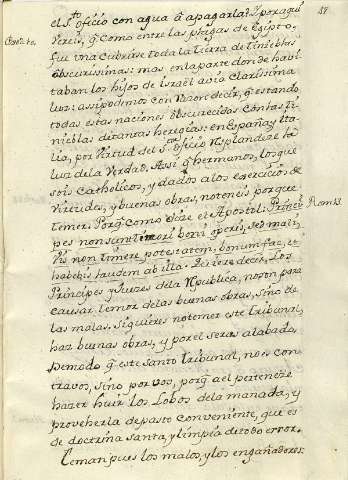 37
el S.to oficio con agua â apagarla? Y por aqui
Vereis, q̃ como entre las plagas de Egipto,
fue una cubrirse toda la tierra de tinieblas
obscurissimas: mas en la parte donde havi
taban los hijos de israël avia clarissima
luz: assi podemos con razon decir, q̃ estando
todas estas naciones obscurecidas con las ti-
nieblas de tantas heregias: en España, y Ita
lia, por Virtud del s.to oficio resplandeze la
luz de la Verdad. Assi q̃ hermanos, los que
sois catholicos, y dados a los exercicios de
Virtudes, y buenas obras, no teneis porque
temer. Porq̃ como dize el Apostol: Princi Rom. 13.
pes non sunt timori boni operis, sed mali,
Vis non timere potestatem, bonum fac, et
habebis laudem ab illa. Quiere decir, Los
Principes y Juezes de la Republica, no son para
causar temor de las buenas obras, sino de
las malas. Si quieres no temer este tribunal,
haz buenas obras, y por el seras alabado.
De modo q̃ este santo tribunal, no es con
tra vos, sino por vos, porq̃ a el pertenece
hazer huir los Lobos de la manada, y
proveherla de pasto conveniente, que es
de doctrina santa, y limpia de todo error.
Teman pues los malos, y los engañadores